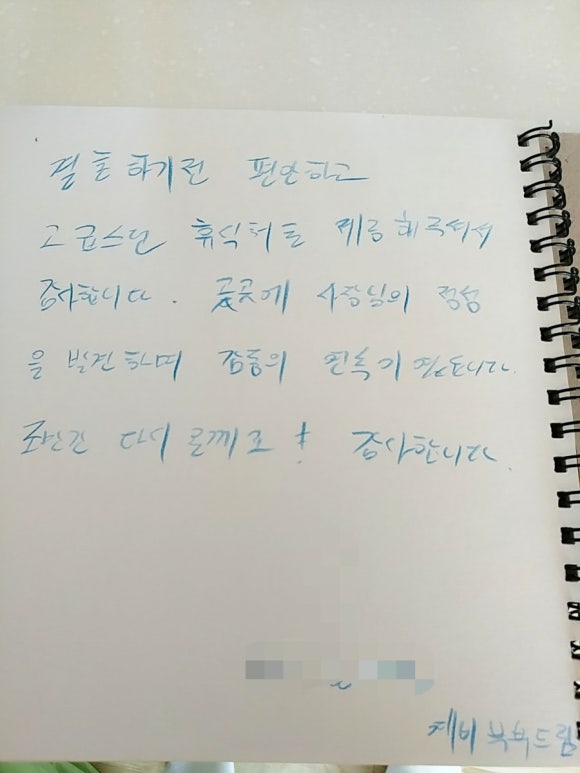 결혼하기전 편안하고
고급스런 휴식처를 제공해주셔서
감사합니다. 곳곳에 사장님의 정성
을 발견하며 감동의 연속이였습니다.
조만간 다시 올께요! 감사합니다.
예비 부부드림